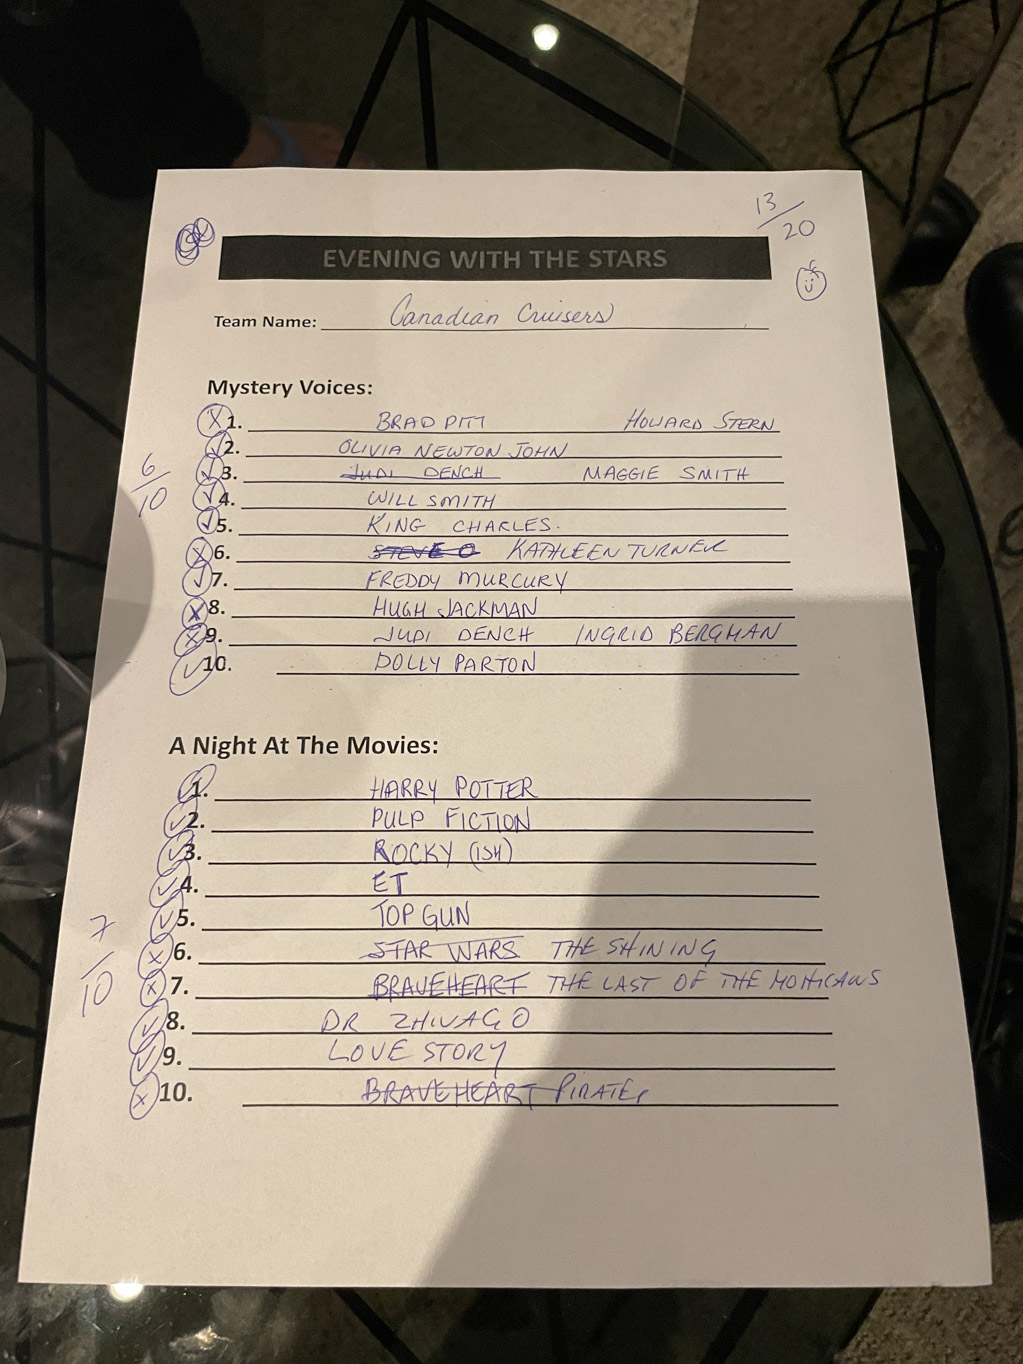 13/20
EVENING WITH THE STARS
Team Name: Canadian Cruisers
Mystery Voices:
1. BRAD PITT HOWARD STERN
2. OLIVIA NEWTON JOHN
3. JUDI DENCH MAGGIE SMITH
4. WILL SMITH
5. KING CHARLES.
6/10
6. STEVE O KATHLEEN TURNER
7. FREDDY MURCURY
8. HUGH JACKMAN
9. JUDI DENCH INGRID BERGMAN
10. DOLLY PARTON
A Night At The Movies:
1. HARRY POTTER
2. PULP FICTION
3. ROCKY (ISH)
4. ET
5. TOP GUN
7/10
6. STAR WARS THE SHINING
7. BRAVEHEART THE LAST OF THE MOHICANS
8. DR ZHIVAGO
9. LOVE STORY
10. BRAVEHEART PIRATES